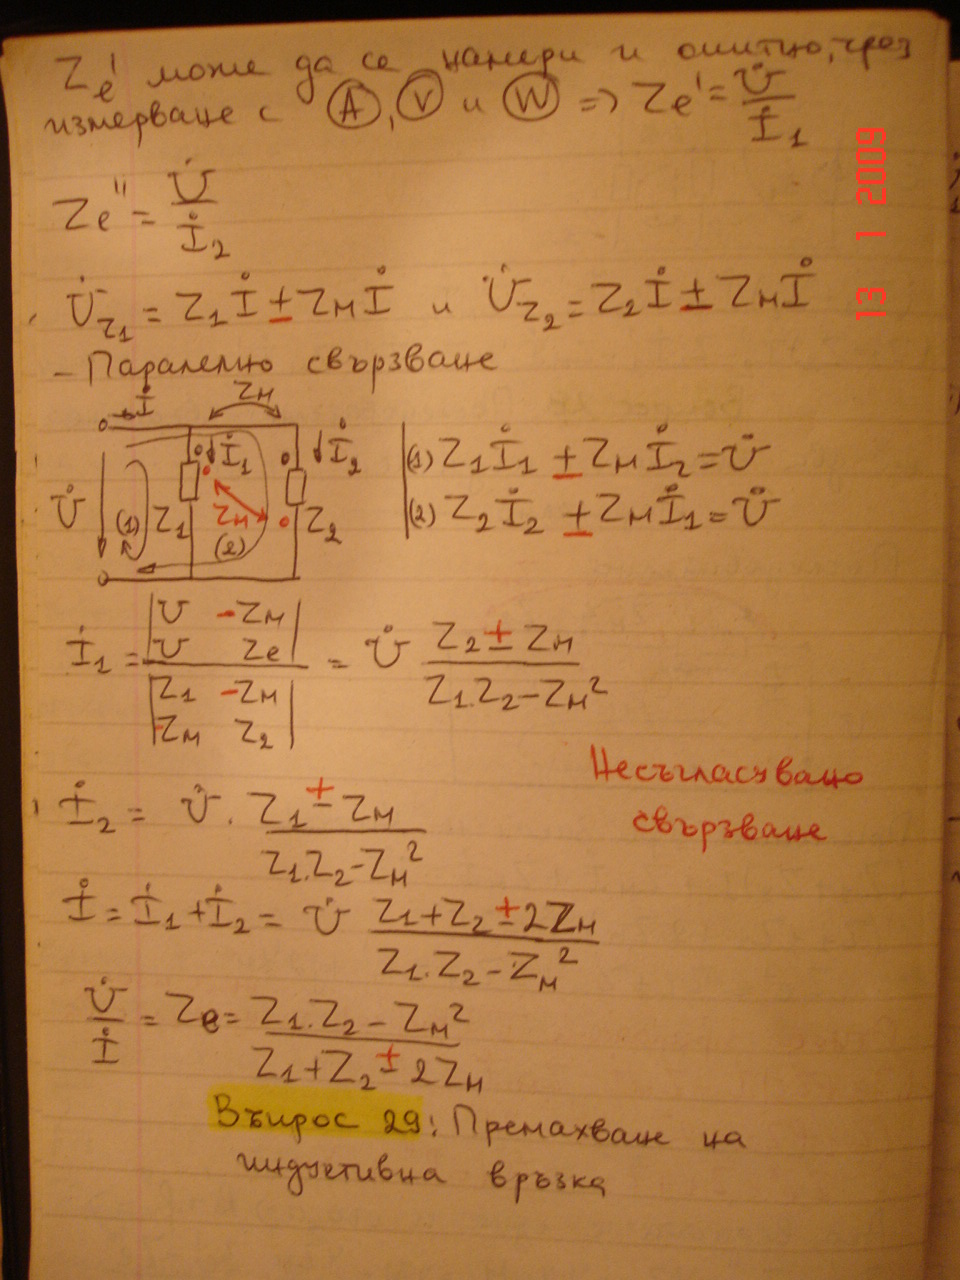 Zе' може да се намери и опитно, чрез
измерване с Ⓐ, Ⓥ и Ⓦ => Zе' = U̇/İ₁
Zе'' = U̇/İ₂
U̇z₁ = Z₁İ ± Zмİ и U̇z₂ = Z₂İ ± Zмİ
- Паралелно свързване
İ Zм
İ₁ İ₂
U̇ (1) Z₁ Zм (2) Z₂
(1) Z₁İ₁ ± Zмİ₂ = U̇
(2) Z₂İ₂ ± Zмİ₁ = U̇
İ₁ = |U -Zм; U Zе| / |Z₁ -Zм; -Zм Z₂| = U̇ (Z₂ ± Zм)/(Z₁.Z₂ - Zм²)
Несъгласувано
свързване
İ₂ = U̇ . (Z₁ ± Zм)/(Z₁.Z₂ - Zм²)
İ = İ₁ + İ₂ = U̇ (Z₁ + Z₂ ± 2Zм)/(Z₁.Z₂ - Zм²)
U̇/İ = Zе = (Z₁.Z₂ - Zм²)/(Z₁ + Z₂ ± 2Zм)
Въпрос 29: Премахване на
индуктивна връзка
13 1 2009